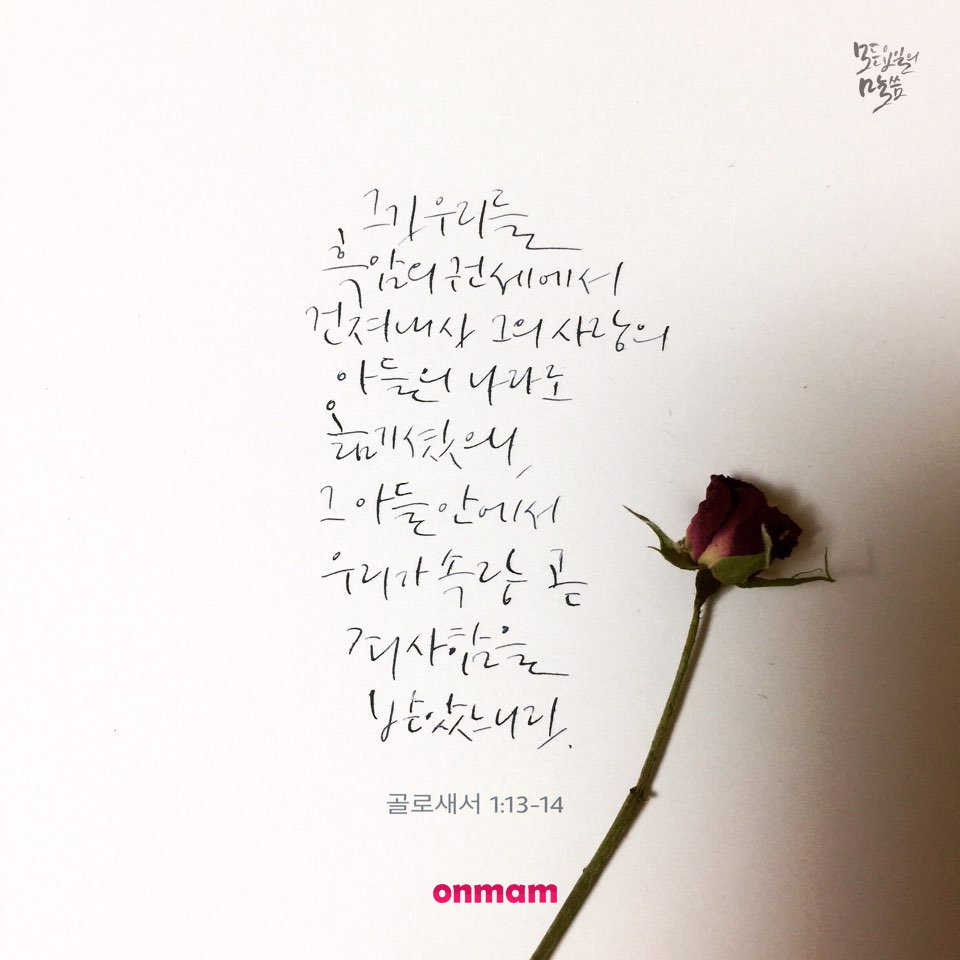 모든입술의
말씀
그가 우리를
흑암의 권세에서
건져내사 그의 사랑의
아들의 나라로
옮기셨으니,
그 아들 안에서
우리가 속량 곧
죄 사함을
받았느니라.
골로새서 1:13-14
onmam